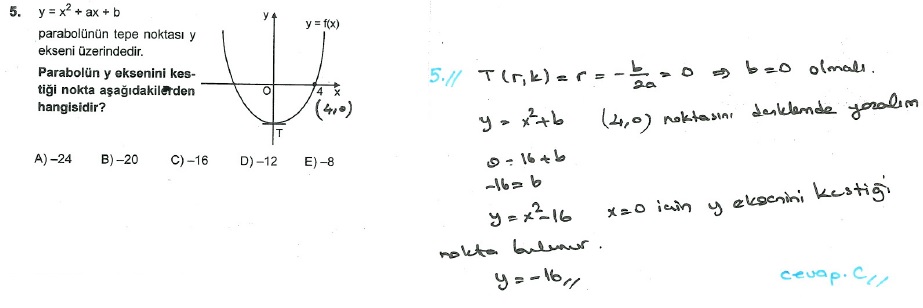 5. y = x² + ax + b
parabolünün tepe noktası y
ekseni üzerindedir.
Parabolün y eksenini kes-
tiği nokta aşağıdakilerden
hangisidir?
y
y = f(x)
O
4
x
(4,0)
T
A) –24 B) –20 C) –16 D) –12 E) –8
5.// T(r,k) = r = -b/2a = 0 ⇒ b=0 olmalı.
y = x²+b (4,0) noktasını denklemde yazalım
0 = 16+b
-16 = b
y = x²-16 x=0 için y eksenini kestiği
nokta bulunur.
y = -16//
cevap. C//